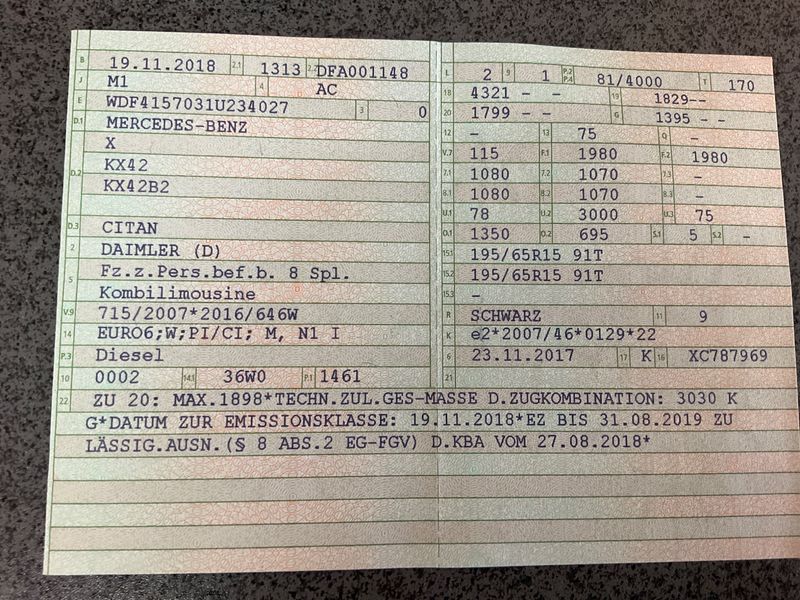 B 19.11.2018 2.1 1313 2.2 DFA001148
J M1 4 AC
E WDF4157031U234027 3 0
D.1 MERCEDES-BENZ
X
D.2 KX42
KX42B2
D.3 CITAN
2 DAIMLER (D)
5 Fz.z.Pers.bef.b. 8 Spl.
Kombilimousine
V.9 715/2007*2016/646W
14 EURO6;W;PI/CI; M, N1 I
P.3 Diesel
10 0002 14.1 36W0 P.1 1461
L 2 9 1 P.2 P.4 81/4000 T 170
18 4321 - - 19 1829--
20 1799 - - G 1395 - -
12 - 13 75 Q -
V.7 115 F.1 1980 F.2 1980
7.1 1080 7.2 1070 7.3 -
8.1 1080 8.2 1070 8.3 -
U.1 78 U.2 3000 U.3 75
O.1 1350 O.2 695 S.1 5 S.2 -
15.1 195/65R15 91T
15.2 195/65R15 91T
15.3 -
R SCHWARZ 11 9
K e2*2007/46*0129*22
6 23.11.2017 17 K 16 XC787969
21
22 ZU 20: MAX.1898*TECHN.ZUL.GES-MASSE D.ZUGKOMBINATION: 3030 K
G*DATUM ZUR EMISSIONSKLASSE: 19.11.2018*EZ BIS 31.08.2019 ZU
LÄSSIG.AUSN.(§ 8 ABS.2 EG-FGV) D.KBA VOM 27.08.2018*